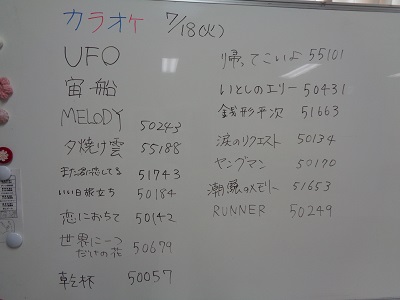 カラオケ 7/18(火)
UFO
宙船
MELODY 50243
夕焼け雲 55188
また君に恋してる 51743
いい日旅立ち 50184
恋におちて 50142
世界に一つ
だけの花 50679
乾杯 50057
帰ってこいよ 55101
いとしのエリー 50431
銭形平次 51663
涙のリクエスト 50134
ヤングマン 50190
潮騒のメモリー 51653
RUNNER 50249